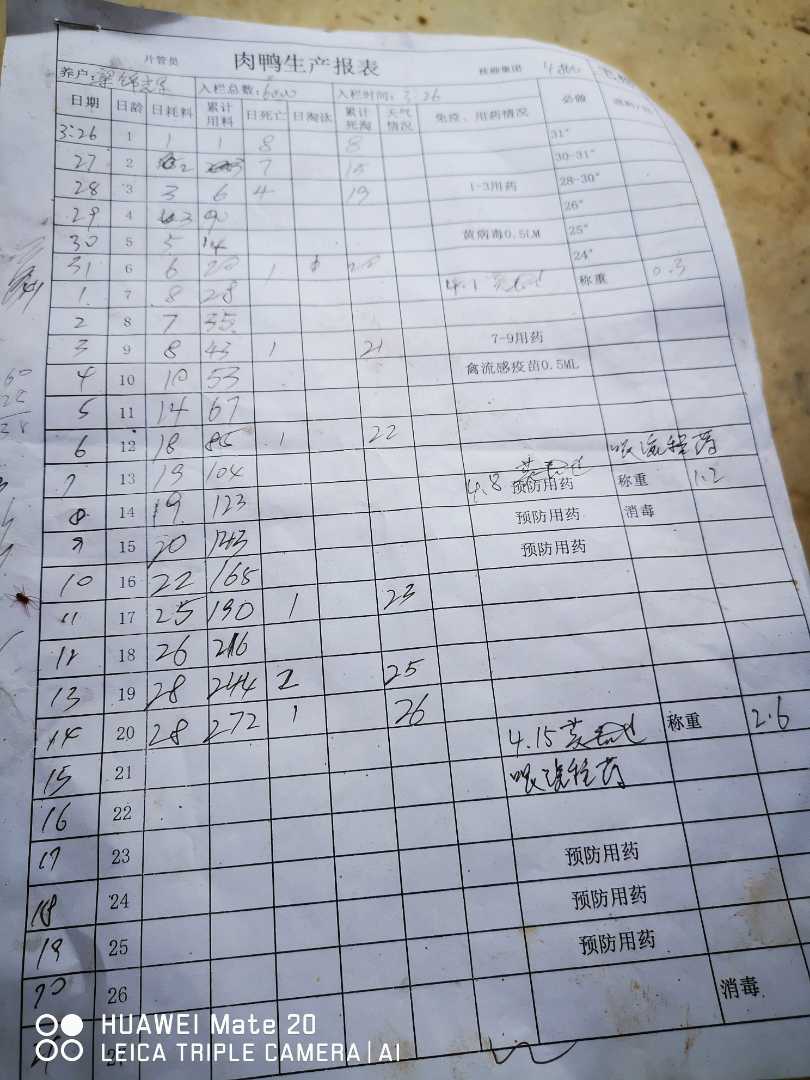 片管员 肉鸭生产报表 桂柳集团
养户: 入栏总数:6000 入栏时间:3.26
日期 日龄 日耗料 累计用料 日死亡 日淘汰 累计死淘 天气情况 免疫、用药情况 必做
3.26 1 1 1 8 8 31°
27 2 2 3 7 15 30-31°
28 3 3 6 4 19 1-3用药 28-30°
29 4 3 9 26°
30 5 5 14 黄病毒0.5LM 25°
31 6 6 20 1 20 24°
1 7 8 28 4.1 称重 0.3
2 8 7 35
3 9 8 43 1 21 7-9用药
4 10 10 53 禽流感疫苗0.5ML
5 11 14 67
6 12 18 85 1 22
7 13 19 104 4.8 预防用药 称重 1.2
8 14 19 123 预防用药 消毒
9 15 20 143 预防用药
10 16 22 165
11 17 25 190 1 23
12 18 26 216
13 19 28 244 2 25
14 20 28 272 1 26
15 21 4.15 称重 2.6
16 22
17 23 预防用药
18 24 预防用药
19 25 预防用药
20 26 消毒
HUAWEI Mate 20
LEICA TRIPLE CAMERA | AI